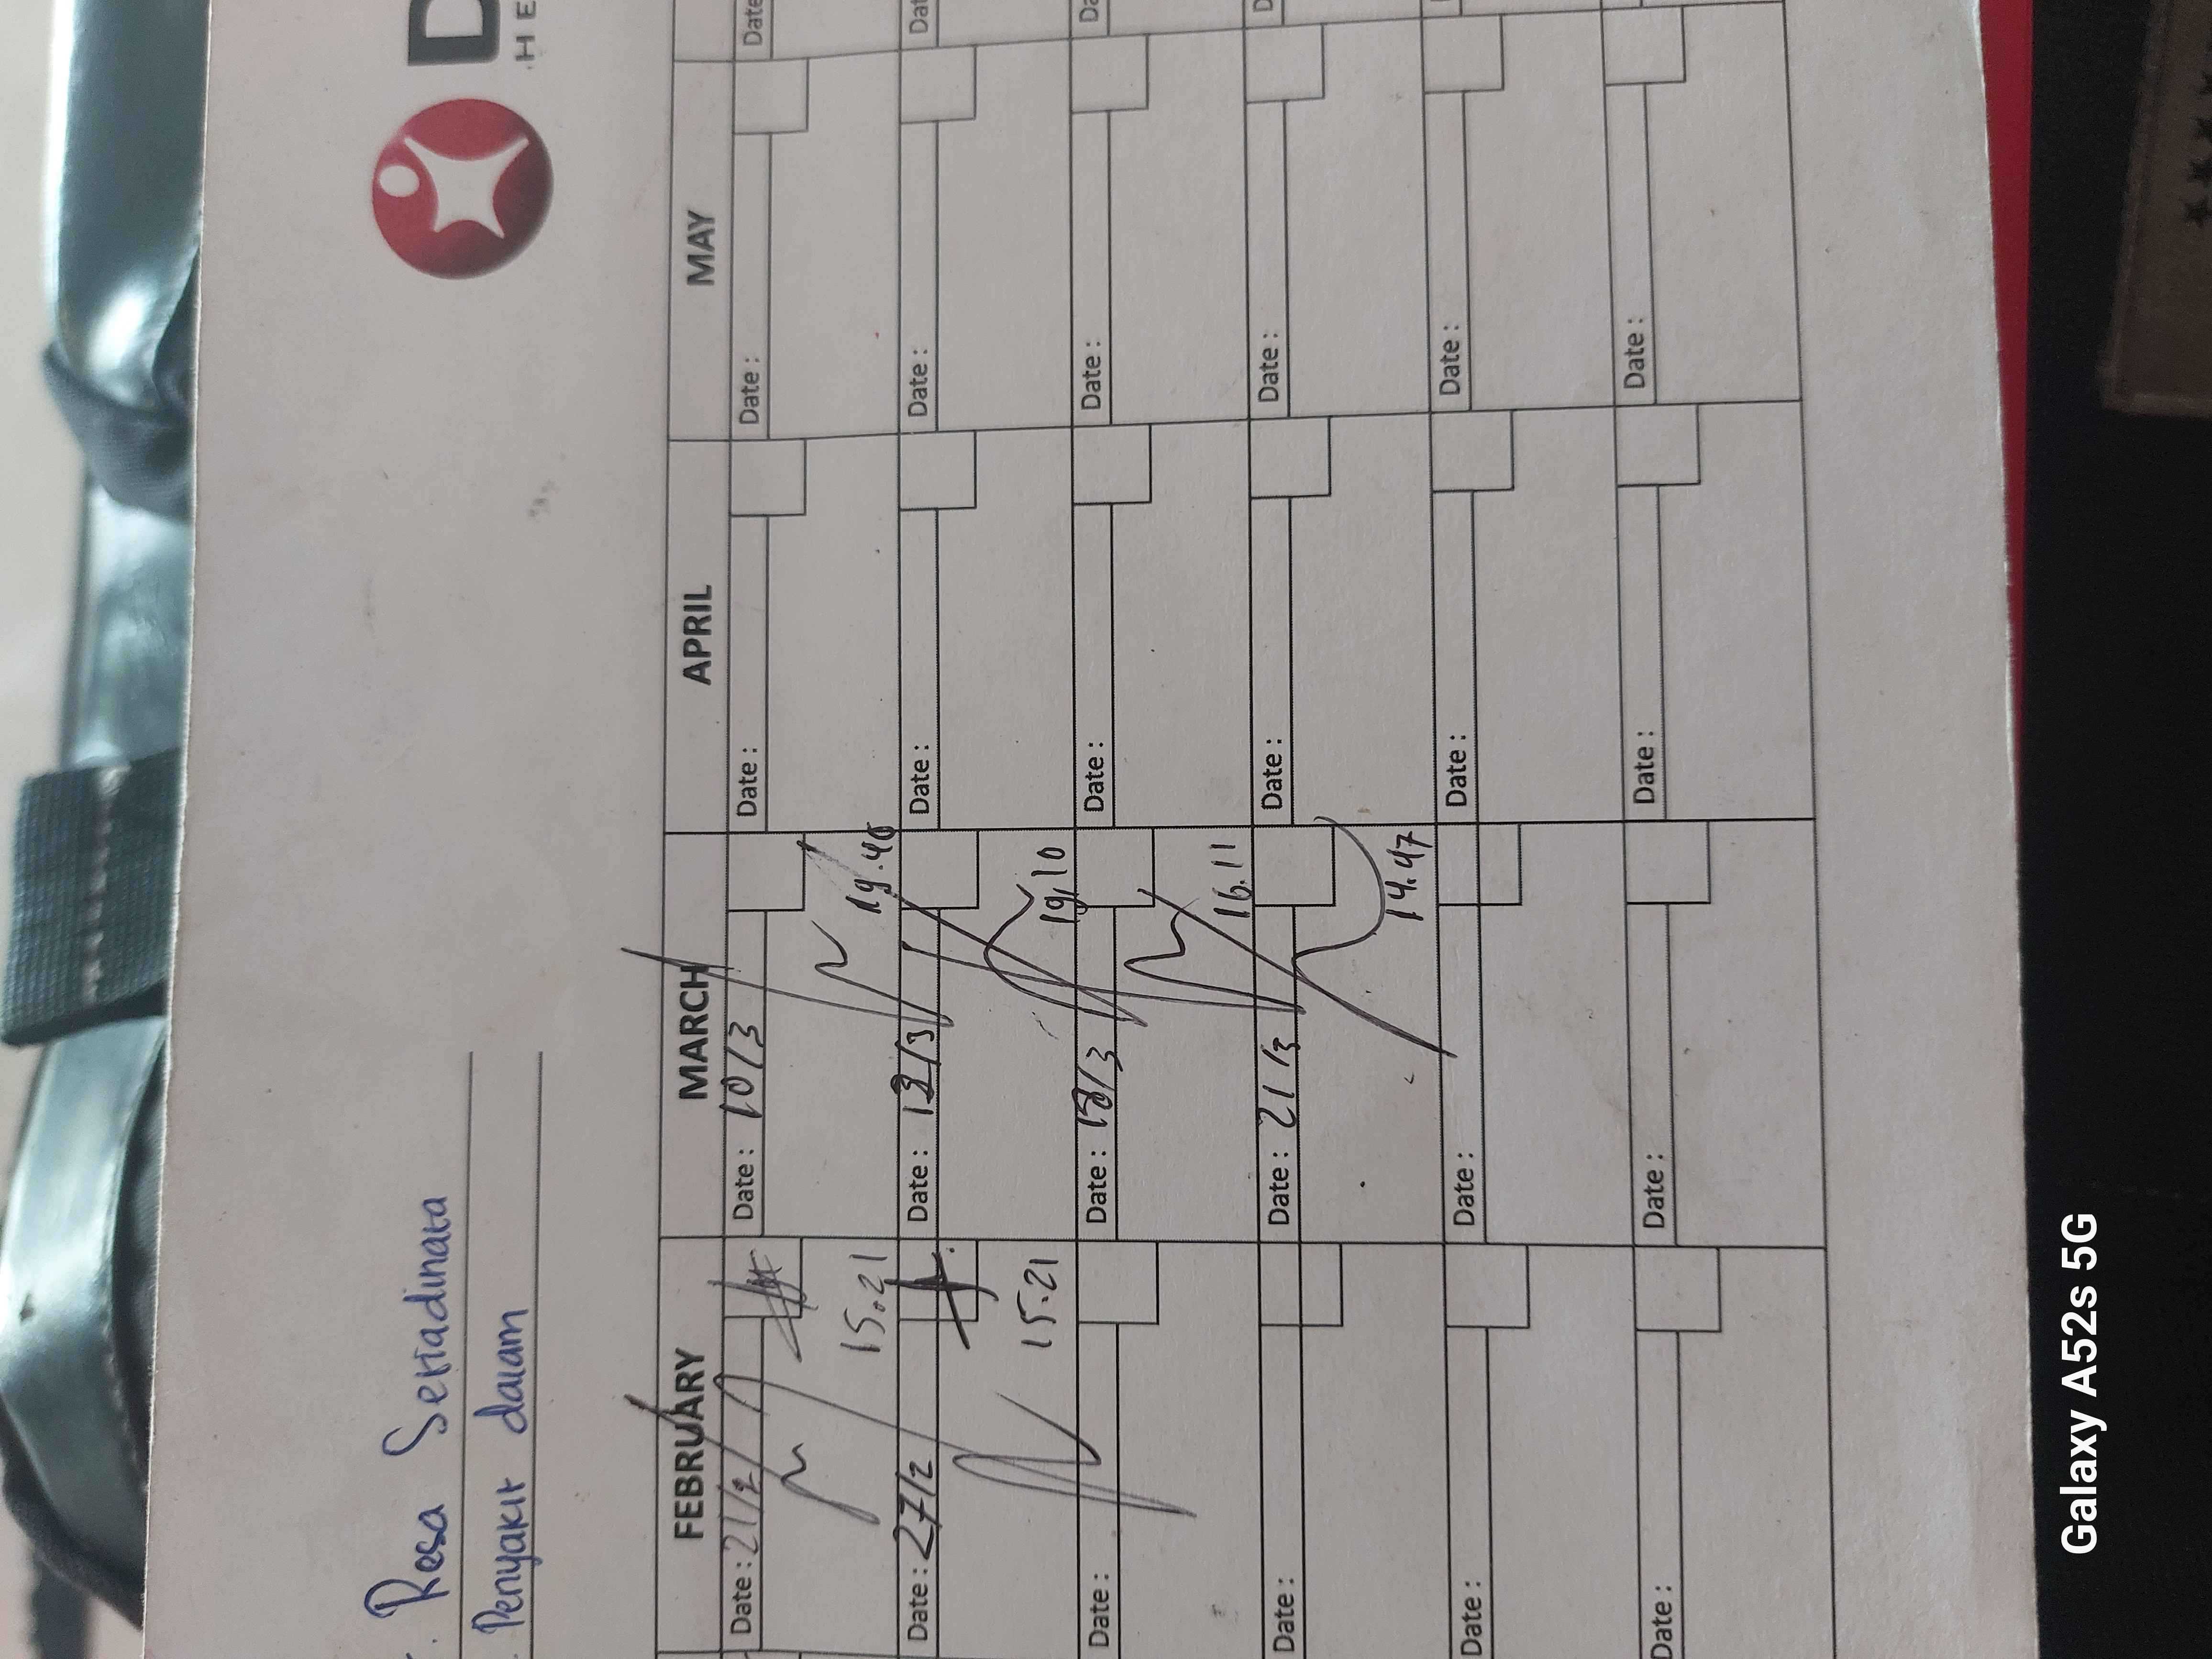 Resa Setiadinata
Penyakit dalam
D
HE
FEBRUARY MARCH APRIL MAY
Date : 21/2 Date : 10/3 Date : Date : Date
15.21 19.46
Date : 27/2 Date : Date : Date : Dat
15.21 19.10
Date : Date : 18/3 Date : Date : Da
16.11
Date : Date : 21/3 Date : Date : D
14.47
Date : Date : Date : Date :
Date : Date : Date : Date :
Galaxy A52s 5G